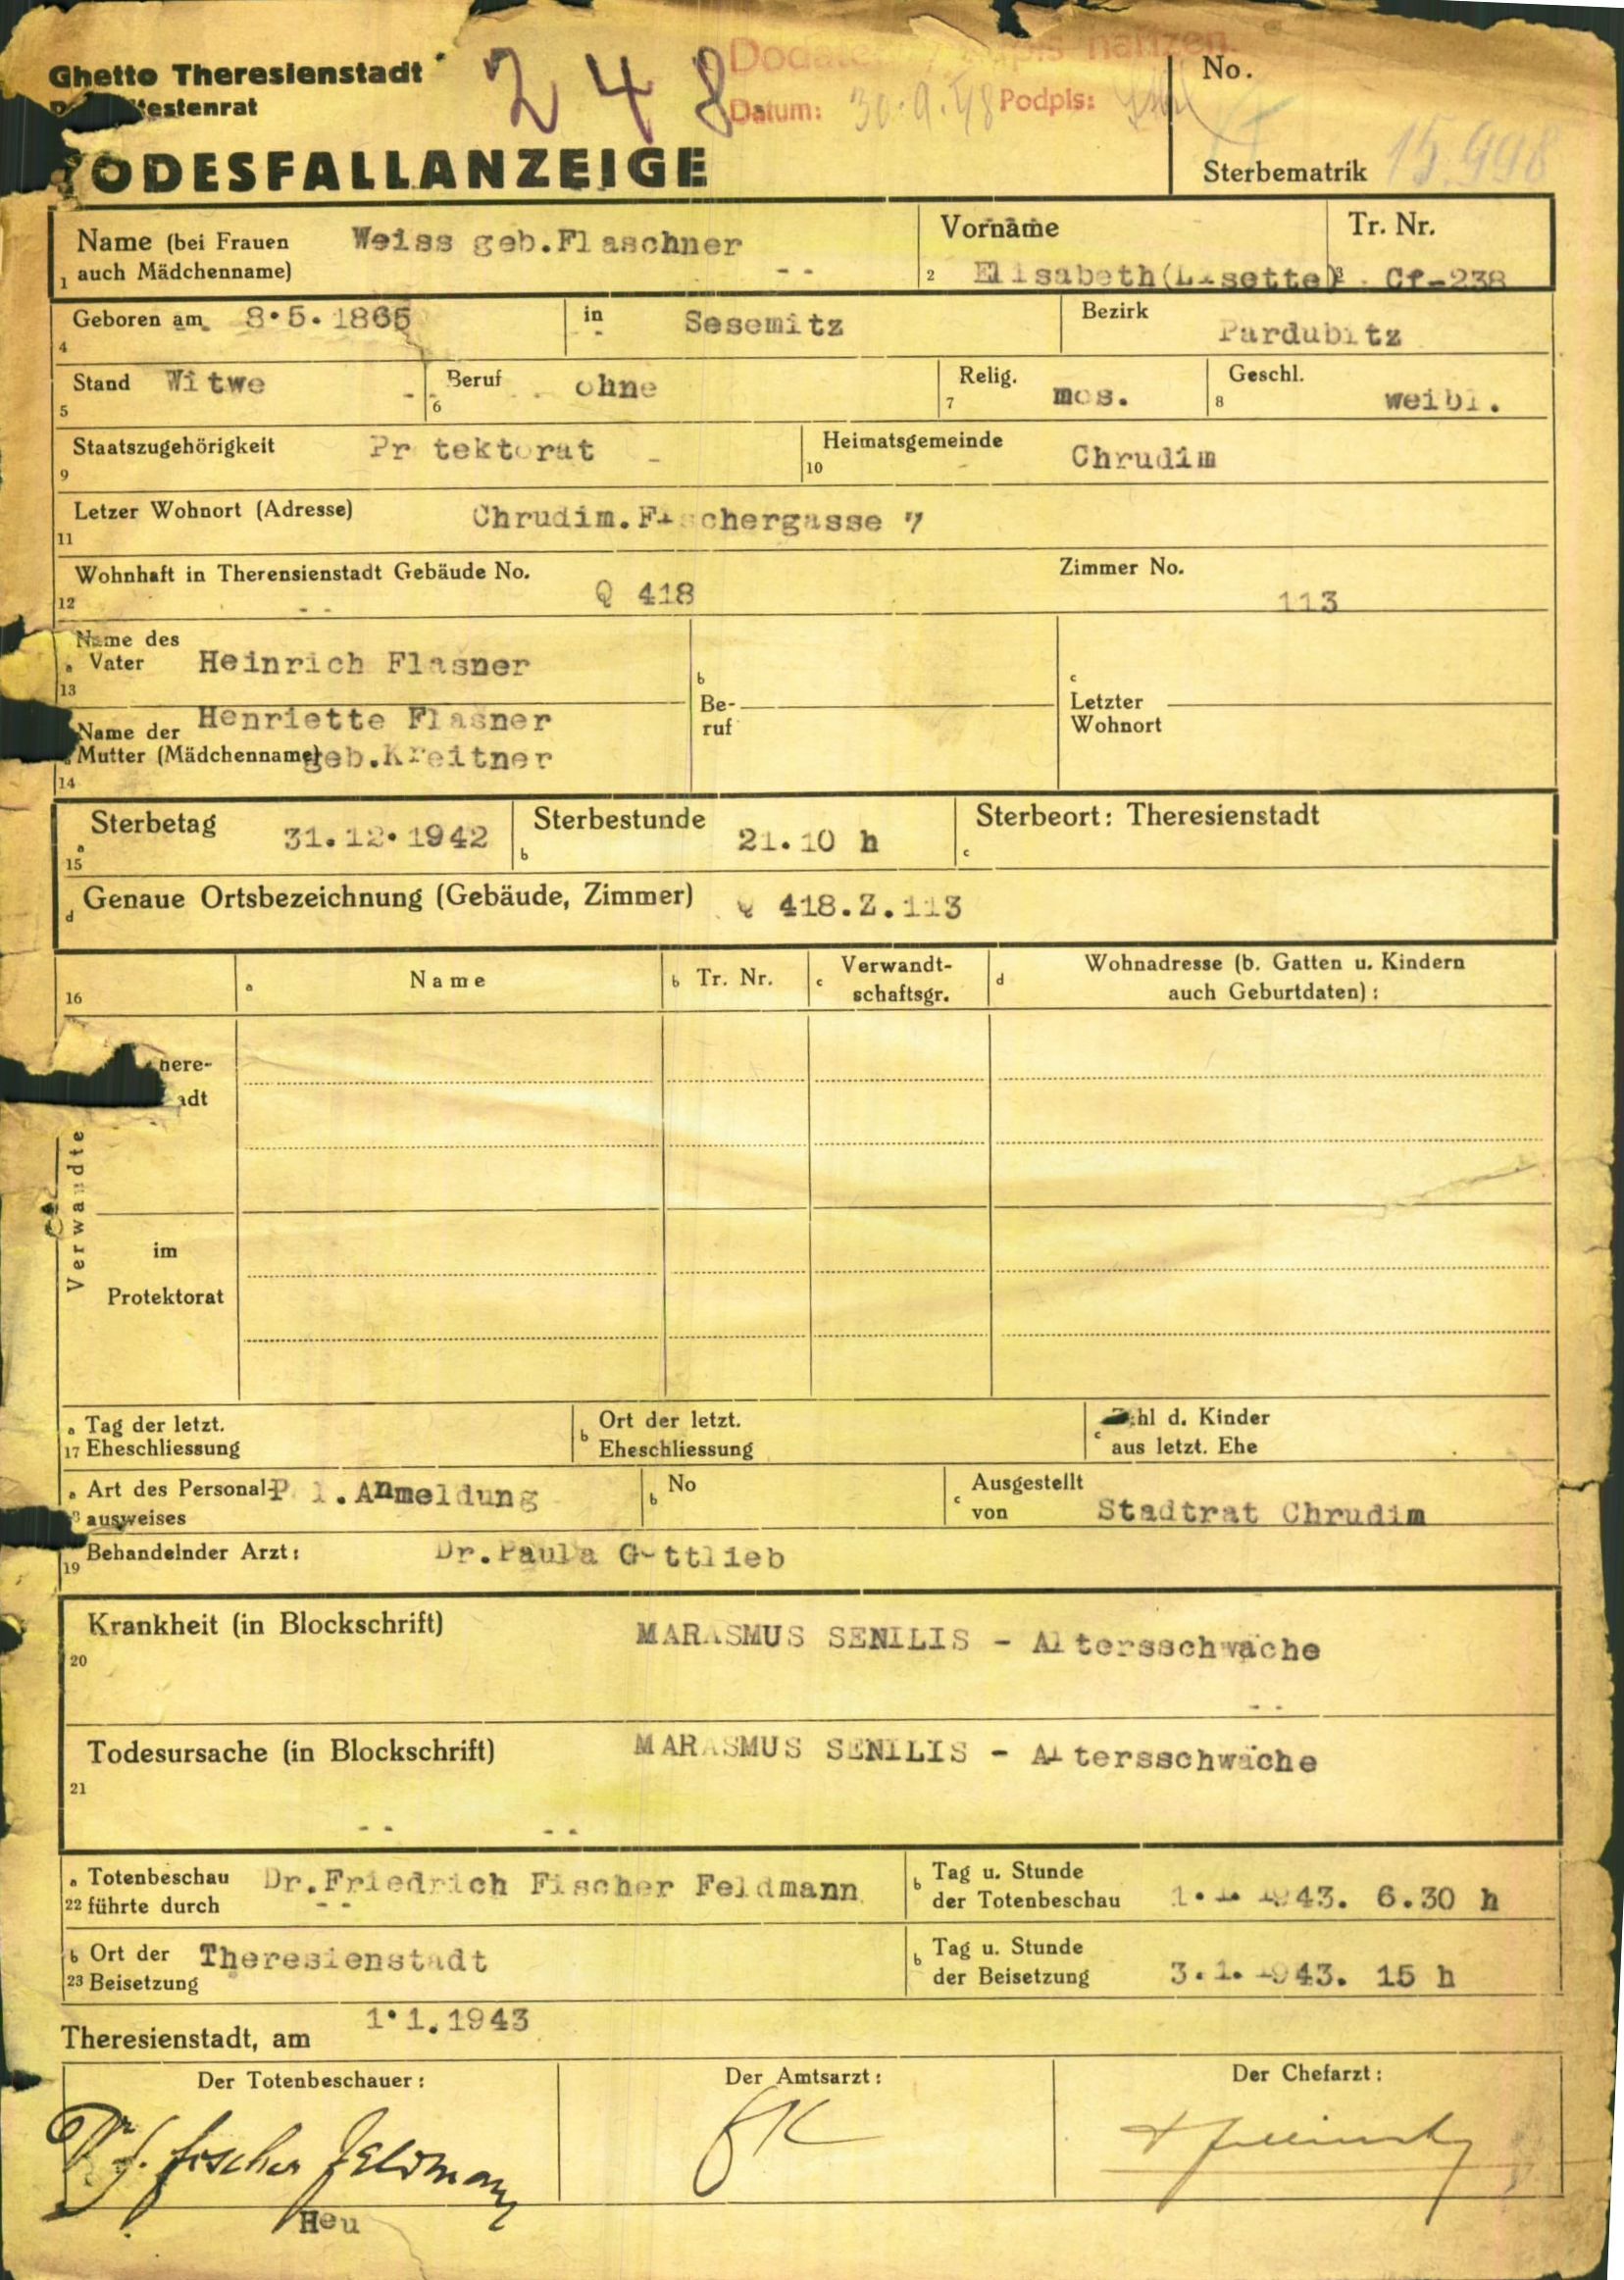 Ghetto Theresienstadt
estenrat
248
Datum: 30.9.48 Podpis:
No.
TODESFALLANZEIGE
Sterbematrik 15.998
Name (bei Frauen auch Mädchenname) Weiss geb.Flaschner
1
Vorname
2 Elisabeth(Lisette)
Tr. Nr.
3 Cf-238
Geboren am 8.5.1865
4
in Sesemitz
Bezirk Pardubitz
Stand Witwe
5
Beruf ohne
6
Relig. mos.
7
Geschl. weibl.
8
Staatszugehörigkeit Pr tektorat -
9
Heimatsgemeinde Chrudim
10
Letzer Wohnort (Adresse) Chrudim.Fischergasse 7
11
Wohnhaft in Therensienstadt Gebäude No. Q 418
12
Zimmer No. 113
Name des
a Vater Heinrich Flasner
13
Name der Henriette Flasner
Mutter (Mädchenname) geb.Kreitner
14
b
Be-
ruf
c
Letzter
Wohnort
Sterbetag 31.12.1942
a
15
Sterbestunde 21.10 h
b
Sterbeort: Theresienstadt
c
d Genaue Ortsbezeichnung (Gebäude, Zimmer) Q 418.Z.113
16
a Name
b Tr. Nr.
c Verwandt-
schaftsgr.
d Wohnadresse (b. Gatten u. Kindern
auch Geburtdaten):
here-
adt
Verwandte
im
Protektorat
a Tag der letzt.
17 Eheschliessung
b Ort der letzt.
Eheschliessung
c Zahl d. Kinder
aus letzt. Ehe
a Art des Personal- P l.Anmeldung
ausweises
b No
c Ausgestellt
von Stadtrat Chrudim
Behandelnder Arzt: Dr.Paula Gottlieb
19
Krankheit (in Blockschrift) MARASMUS SENILIS - Altersschwäche
20
Todesursache (in Blockschrift) MARASMUS SENILIS - Altersschwäche
21
a Totenbeschau Dr.Friedrich Fischer Feldmann
22 führte durch
b Tag u. Stunde
der Totenbeschau 1.1.1943. 6.30 h
b Ort der Theresienstadt
23 Beisetzung
b Tag u. Stunde
der Beisetzung 3.1.1943. 15 h
Theresienstadt, am 1.1.1943
Der Totenbeschauer:
Der Amtsarzt:
Der Chefarzt:
Dr. f. Fischer Feldmann
Heu